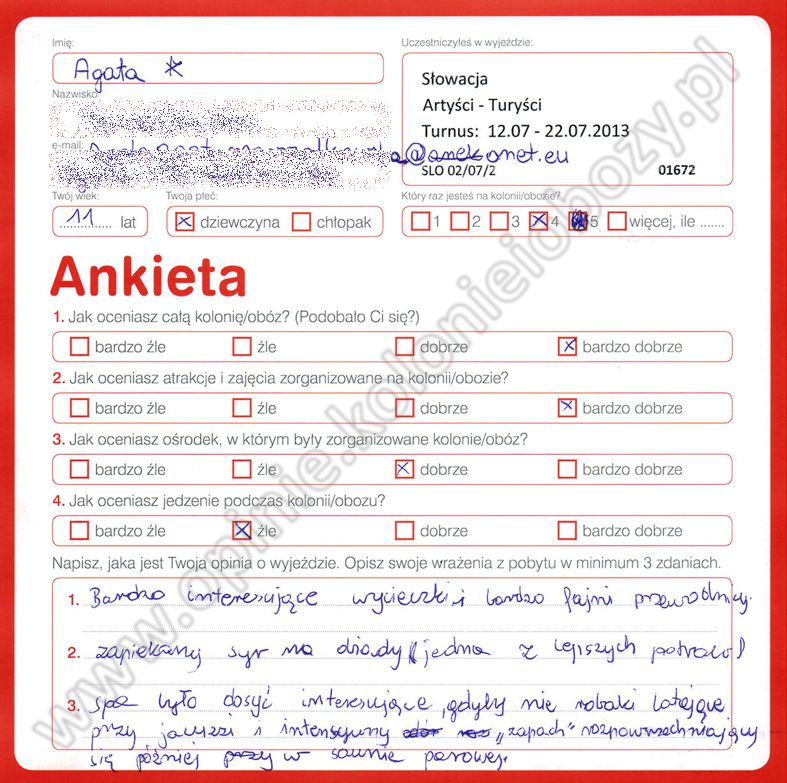 Imię:
Agata
Uczestniczyłeś w wyjeździe:
Słowacja
Artyści - Turyści
Turnus: 12.07 - 22.07.2013
SLO 02/07/2
01672
Nazwisko:
e-mail:
net.eu
Twój wiek:
11 lat
Twoja płeć:
dziewczyna chłopak
Który raz jesteś na kolonii/obozie?
1 2 3 4 5 więcej, ile .......
Ankieta
1. Jak oceniasz całą kolonię/obóz? (Podobało Ci się?)
bardzo źle źle dobrze bardzo dobrze
2. Jak oceniasz atrakcje i zajęcia zorganizowane na kolonii/obozie?
bardzo źle źle dobrze bardzo dobrze
3. Jak oceniasz ośrodek, w którym były zorganizowane kolonie/obóz?
bardzo źle źle dobrze bardzo dobrze
4. Jak oceniasz jedzenie podczas kolonii/obozu?
bardzo źle źle dobrze bardzo dobrze
Napisz, jaka jest Twoja opinia o wyjeździe. Opisz swoje wrażenia z pobytu w minimum 3 zdaniach.
1. Bardzo interesujące wycieczki i bardzo fajni przewodnicy.
2. zapiekany syr na (jedna z lepszych potraw)
3. spa było dosyć interesujące, gdyby nie robaki latające
przy jacuzzi i intensywny „zapach" rozpowrzechniający
się później w saunie parowej.
www.opinie.kolonieiobozy.pl